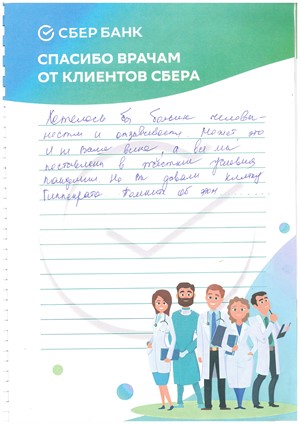 СБЕР БАНК
СПАСИБО ВРАЧАМ
ОТ КЛИЕНТОВ СБЕРА
Хотелось бы больше человеч-
ности и отзывчивости. Может это
и не ваша вина, а все мы
поставлены в жёсткие условия
пандемии. Но вы давали клятву
Гиппократа. Помните об этом ...